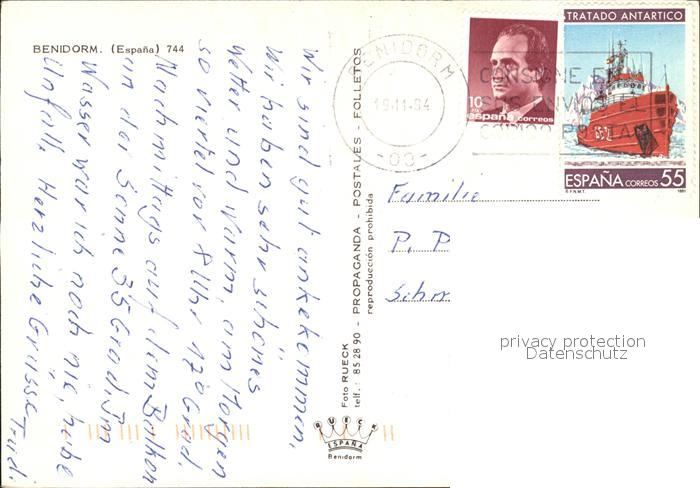 BENIDORM. (España) 744
Wir sind gut ankekommen,
Wir haben sehr schönes
Wetter und Warm, am Morgen
so viertel vor 8 Uhr 17° Grad,
Nachmittags auf dem Balkon
an der Sonne 35 Grad. Im
Wasser war ich noch nie, habe
Herzliche Grüsse
Foto RUECK
telf.: 85 28 90 - PROPAGANDA - POSTALES - FOLLETOS
reproducción prohibida
RUECK
ESPAÑA
Benidorm
BENIDORM
19-11-84
-03-
CONSIGNE EN
SUS ENVIOS EL
CODIGO POSTAL
10
PTA
españa correos
TRATADO ANTARTICO
ESPAÑA CORREOS 55
F.N.M.T.
1991
Familie
P. P
privacy protection
Datenschutz